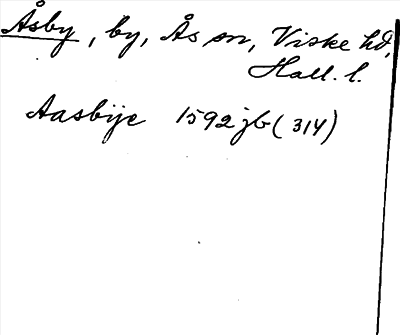 Åsby, by, Ås sn, Viske hd,
Hall. l.
Aasbije 1592 jb (314)